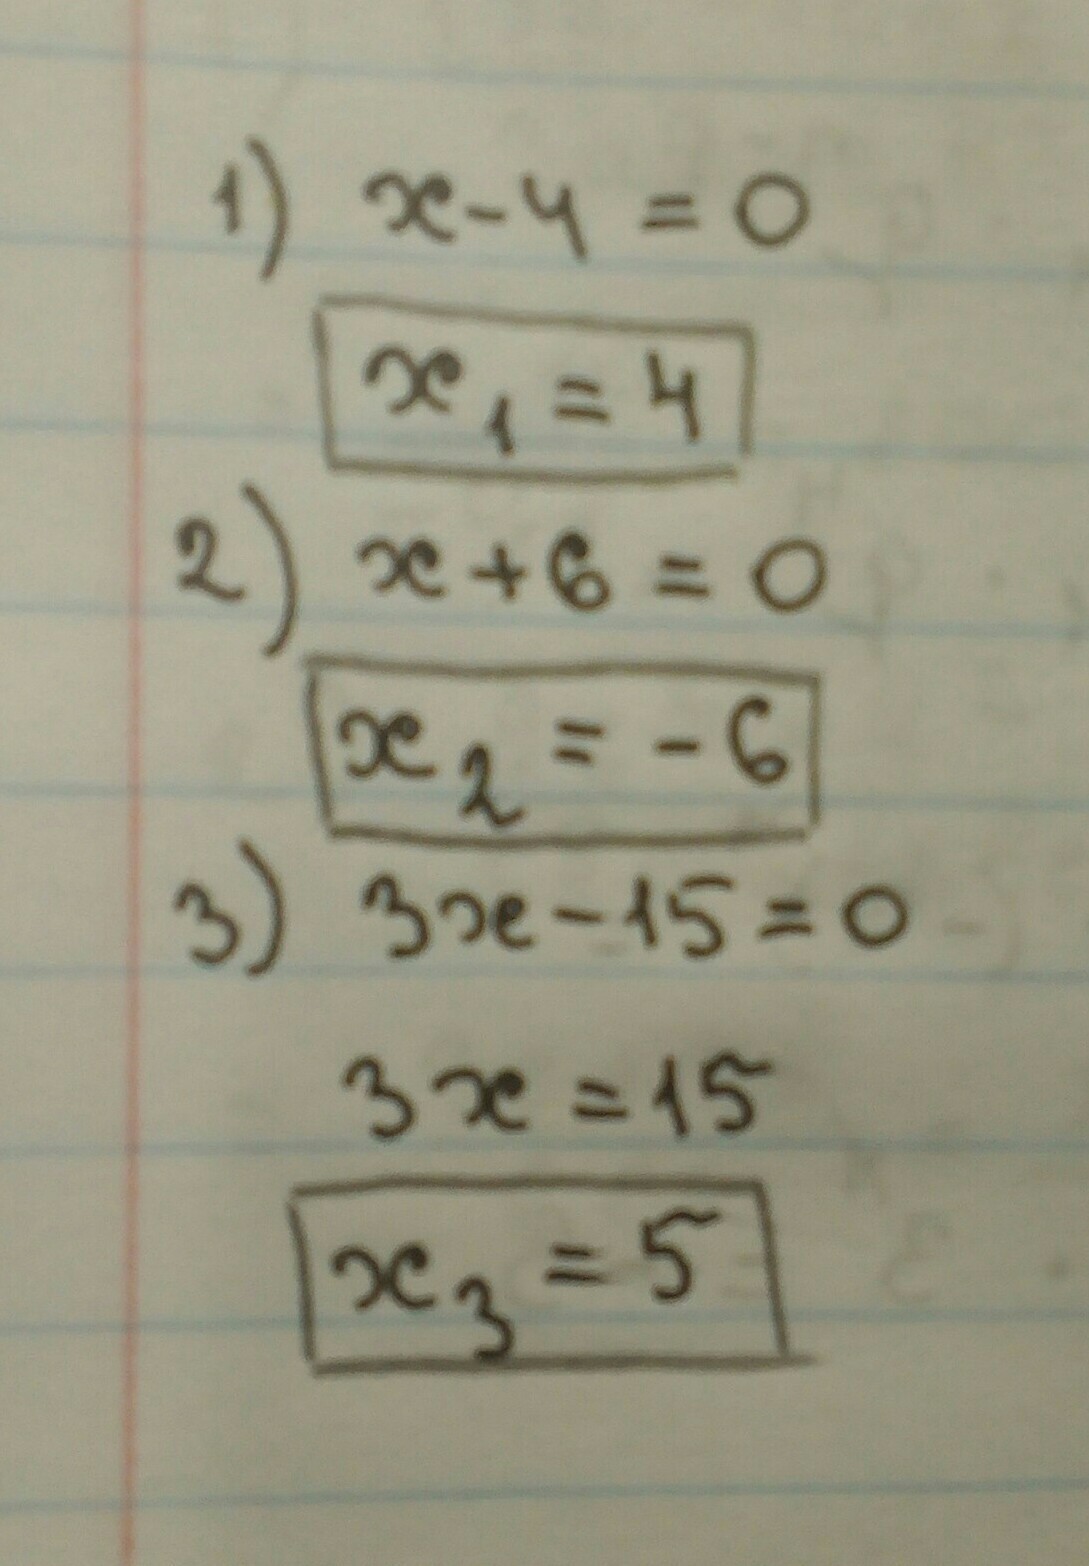 1) x - 4 = 0
x₁ = 4
2) x + 6 = 0
x₂ = - 6
3) 3x - 15 = 0
3x = 15
x₃ = 5